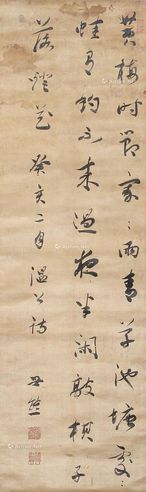 黄梅时节家〻雨青草池塘处〻
蛙有约不来过夜半闲敲棋子
落灯花 癸亥二月 温公诗 世㷆